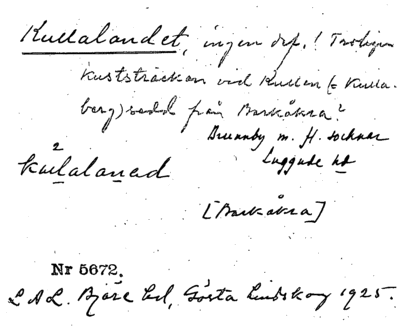 Kullalandet, ingen def.! Troligen
kuststräckan vid Kullen (= Kulla-
berg) sedd från Barkåkra?
Brunnby m. fl. socknar
Luggude hd
2
kulalanad
[Barkåkra]
Nr 5672.
L A L. Bjäre hd, Gösta Lindskog 1925.